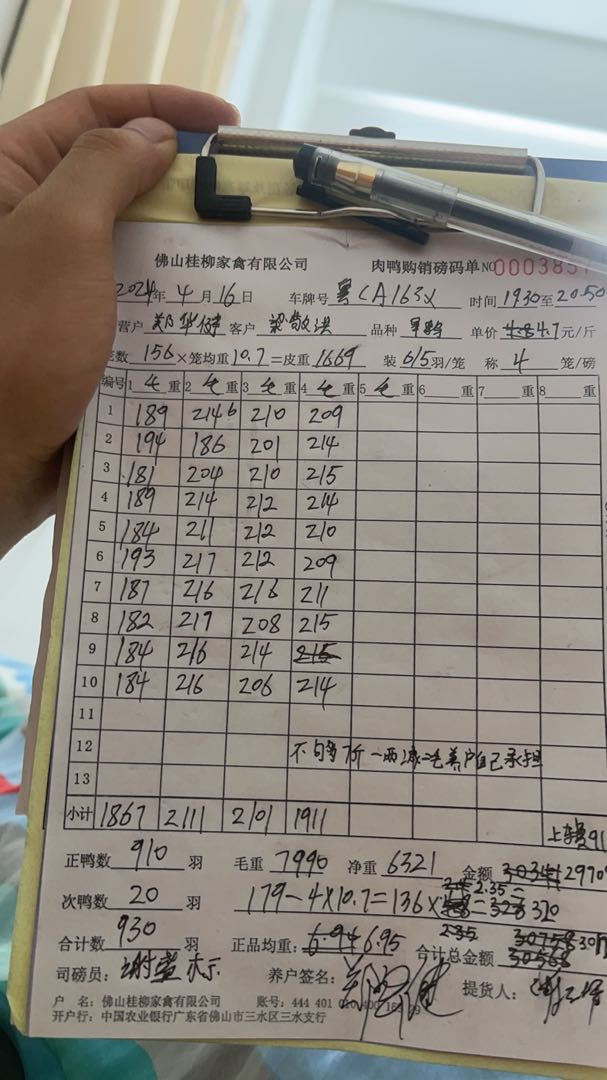 佛山桂柳家禽有限公司 肉鸭购销磅码单 NO 000385
2024年4月16日 车牌号 粤CA163X 时间 1930至2050
营户 郑华健 客户 品种 单价 4.7元/斤
笼数 156×笼均重10.7=皮重1669 装6/5羽/笼 称4笼/磅
编号 1毛重 2毛重 3毛重 4毛重 5毛重 6重 7重 8重
1 189 214 210 209
2 194 186 201 214
3 181 204 210 215
4 189 214 212 214
5 184 211 212 210
6 193 217 212 209
7 187 216 216 211
8 182 217 208 215
9 184 216 214 215
10 184 216 206 214
11
12 不够7斤一两减一毛养户自己承担
13
小计 1867 2111 2101 1911
正鸭数 910 羽 毛重 7990 净重 6321 金额 30341 2970
次鸭数 20 羽 179-4×10.7=136× 2.35= 320
合计数 930 羽 正品均重: 6.94 6.95 合计总金额 30568
司磅员: 养户签名: 提货人:
户 名: 佛山桂柳家禽有限公司 账号: 444 401
开户行: 中国农业银行广东省佛山市三水区三水支行